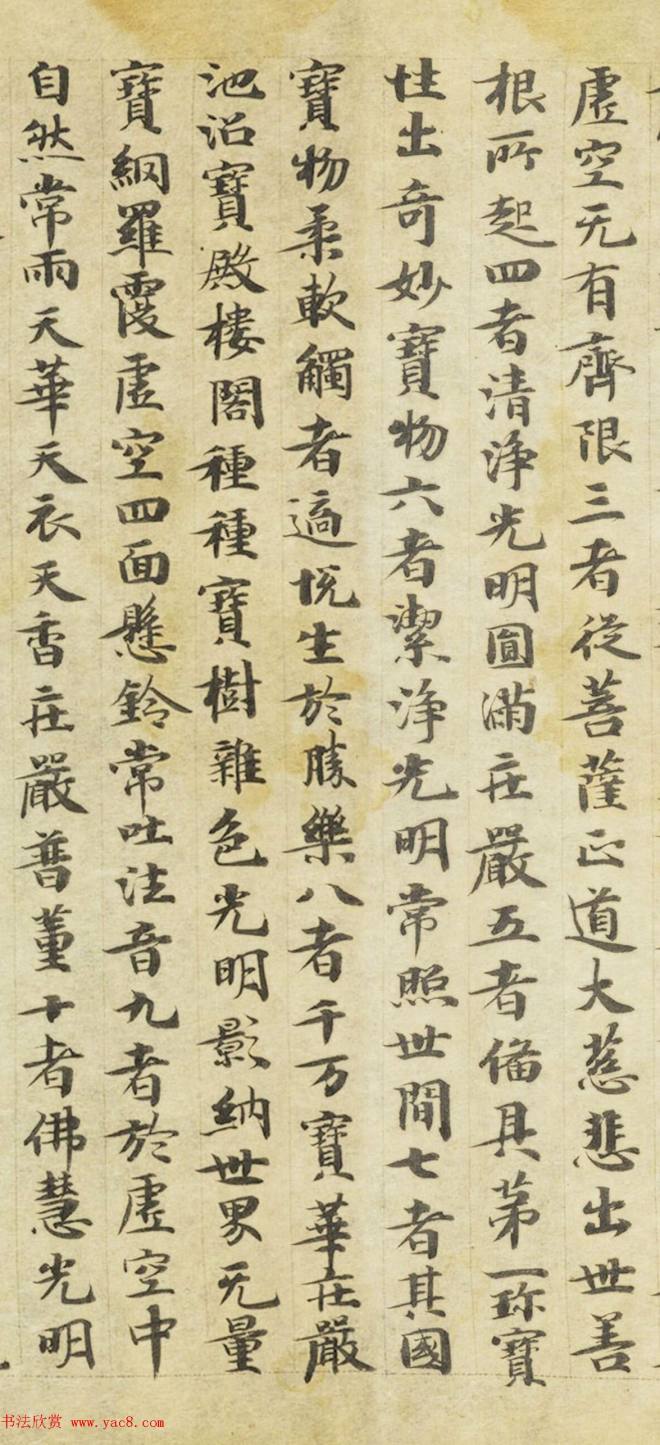 虛空无有齊限三者從菩薩正道大慈悲出世善
根所起四者清淨光明圓滿庄嚴五者俻具苐一珎寶
性出奇妙寶物六者潔淨光明常照世間七者其國
寶物柔軟觸者適悅生於勝樂八者千万寶華庄嚴
池沼寶殿樓閣種種寶樹雜色光明影納世界无量
寶網羅覆虛空四面懸鈴常吐法音九者於虛空中
自然常雨天華天衣天香庄嚴普薰十者佛慧光明
书法欣赏 www.yac8.com